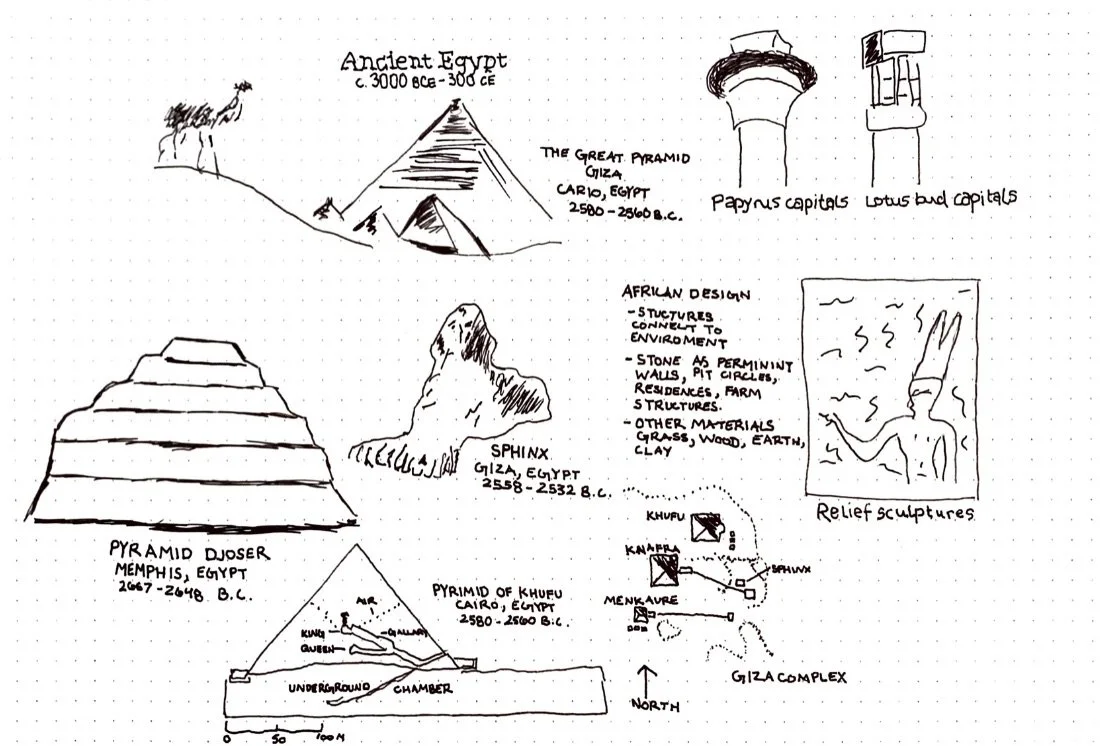 Ancient Egypt
c. 3000 BCE - 300 CE
THE GREAT PYRAMID
GIZA
CARIO, EGYPT
2580 - 2560 B.C.
Papyrus capitals
Lotus bud capitals
AFRICAN DESIGN
- STUCTURES
CONNECT TO
ENVIROMENT
- STONE AS PERMININT
WALLS, PIT CIRCLES,
RESIDENCES, FARM
STRUCTURES.
- OTHER MATERIALS
GRASS, WOOD, EARTH,
CLAY
Relief sculptures
SPHINX
GIZA, EGYPT
2558 - 2532 B.C.
PYRAMID DJOSER
MEMPHIS, EGYPT
2667 - 2648 B.C.
PYRIMID OF KHUFU
CAIRO, EGYPT
2580 - 2560 B.C.
AIR
KING
GALLARY
QUEEN
UNDERGROUND CHAMBER
0 50 100 M
KHUFU
KNAFRA
SPHINX
MENKAURE
GIZA COMPLEX
NORTH